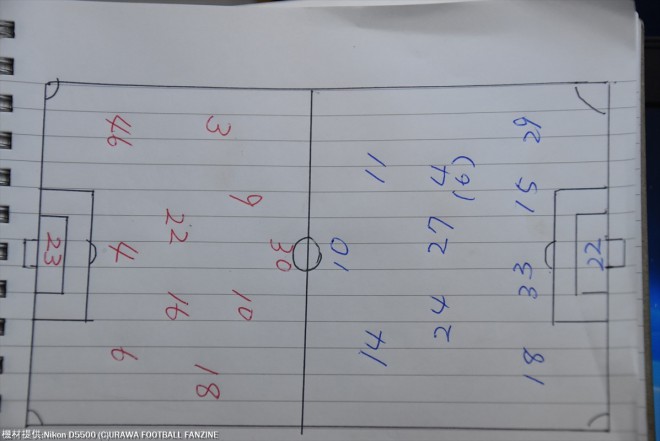 46
3
9
22
23
4
30
16
10
6
18
11
4
(6)
29
15
10
27
22
33
14
24
18
機材提供:Nikon D5500 (C)URAWA FOOTBALL FANZINE